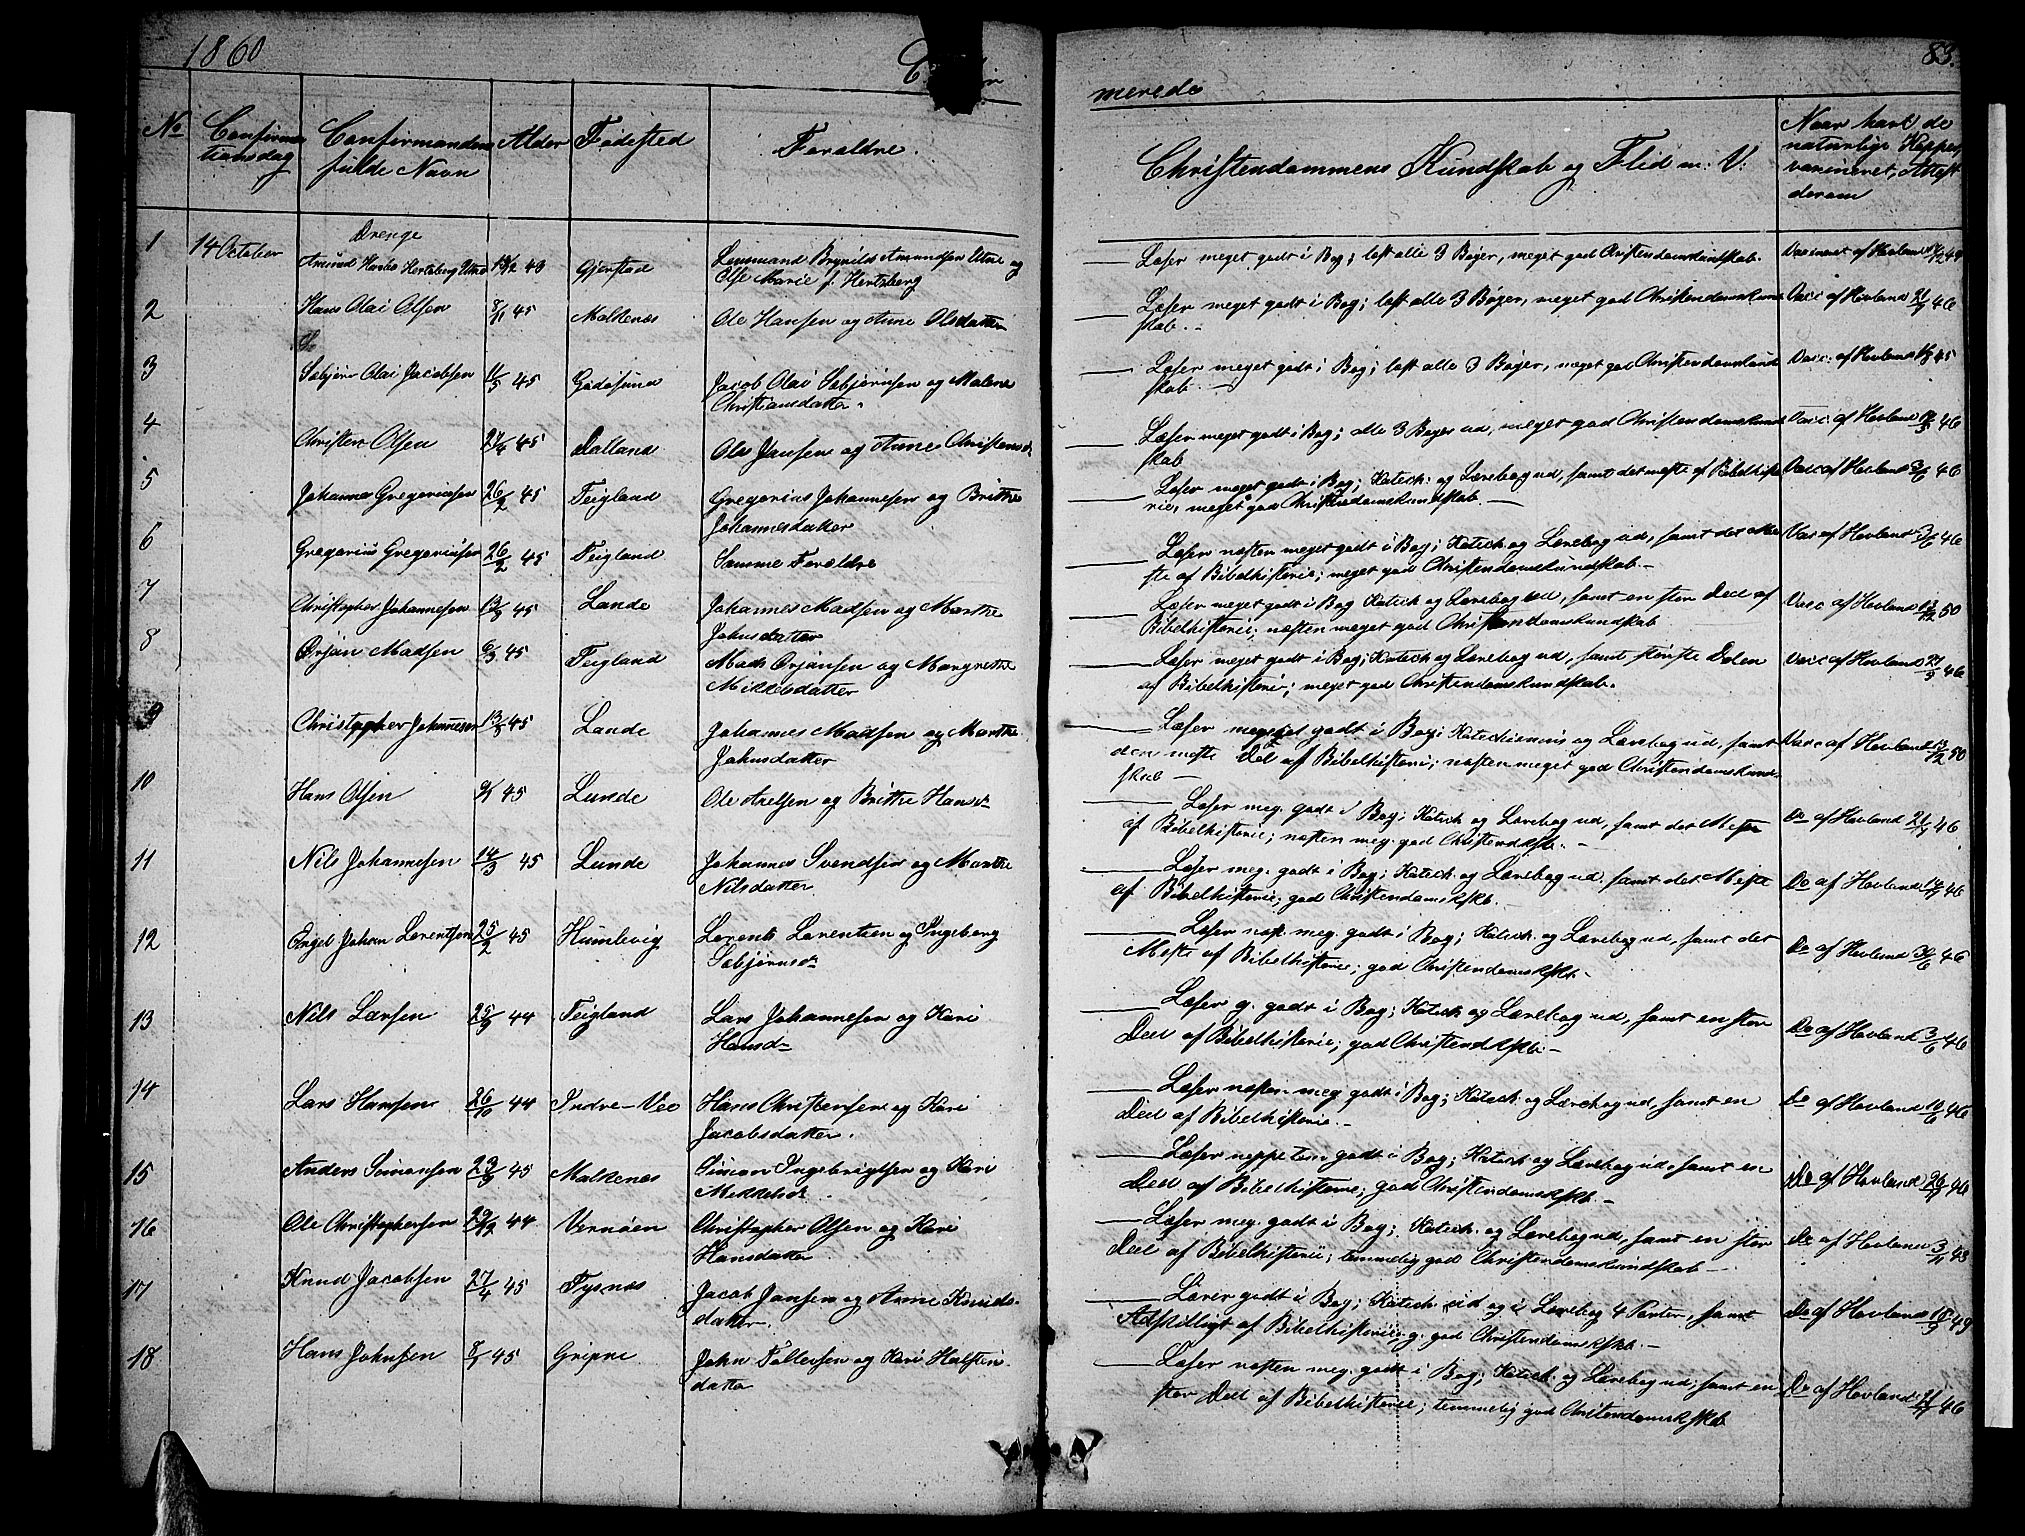 1860
83.
merede
No
Confirma
tionsdag
Confirmandens
fulde Navn
Alder
Fødested
Forældre.
Christendommens Kundskab og Flid m: V:
Naar havt de
naturlige Kopper,
vaccineret, Attest
derom
Drenge
1 14 October Amund Utne Gjerstad Lensmand Brynild Amundsen Utne og
Else Marie f. Hertzberg
Læser meget godt i Bog; læst alle 3 Bøger, meget god Christendomskundskab.
Vaccineret af Hovland
2 Hans Olai Olsen 45 Malkenæs Ole Hansen og Anne Olsdatter
Læser meget godt i Bog; læst alle 3 Bøger, meget god Christendomskund
skab.
Vacc af Hovland 46
3 Sæbjørn Olai Jacobsen 11/5 45 Godøsund Jacob Olai Sæbjørnsen og Malene
Christiansdatter.
Læser meget godt i Bog; læst alle 3 Bøger, meget god Christendomskund
skab.
Vacc: af Hovland 45
4 Christen Olsen 45 Dalland Ole Jansen og Anne Christensd.
Læser meget godt i Bog; alle 3 Bøger ud, meget god Christendomskund
skab
Vacc: af Hovland 46
5 Johannes Gregoriusen 26/2 45 Teigland Gregorius Johannesen og Brithe
Johannesdatter
Læser meget godt i Bog; Katech. og Lærebog ud, samt det meste af Bibelhisto
rie, meget god Christendomskundskab.
Vacc af Hovland 3/6 46
6 Gregorius Gregoriusen 26/2 45 Teigland Samme Forældre
Læser næsten meget godt i Bog; Katech og Lærebog ud, samt det me
ste af Bibelhistorie; meget god Christendomskundskab.
Vac af Hovland 3/6 46
7 Christopher Johannesen 13/3 45 Lande Johannes Madsen og Marthe
Johnsdatter
Læser meget godt i Bog Katech og Lærebog ud, samt en stor Deel af
Bibelhistorie; næsten meget god Christendomskundskab
Vacc af Hovland 50
8 Ørjan Madsen 45 Teigland Mads Ørjansen og Margrethe
Mikkelsdatter
Læser meget godt i Bog; Katech og Lærebog ud, samt største Delen
af Bibelhistorie; meget god Christendomskundskab.
Vacc af Hovland 46
9 Christopher Johannesen 13/3 45 Lande Johannes Madsen og Marthe
Johnsdatter
Læser meget godt i Bog; Katechismus og Lærebog ud, samt
den meste Del af Bibelhistorie; næsten meget god Christendomskund-
skab
Vacc af Hovland 50
10 Hans Olsen 45 Lunde Ole Axelsen og Brithe Hansd.
Læser meg. godt i Bog; Katech og Lærebog ud, samt det Meste
af Bibelhistorie; næsten meg. god Christendskb.
Do af Hovland 46
11 Nils Johannesen 14/3 45 Lunde Johannes Svendsen og Marthe
Nilsdatter
Læser meg. godt i Bog; Katech og Lærebog ud, samt det Meste
af Bibelhistorie; god Christendomskskb.
Do af Hovland 46
12 Engel Johan Lorentsen 25/2 45 Humlevig Lorents Lorentsen og Ingeborg
Sæbjørnsd.
Læser næst. meg. godt i Bog; Katech. og Lærebog ud, samt det
Meste af Bibelhistorie; god Christendomskskb.
Do af Hovland 46
13 Nils Larsen 44 Teigland Lars Johannesen og Kari
Hansd.
Læser g. godt i Bog; Katech og Lærebog ud, samt en stor
Deel af Bibelhistorie; god Christendskskb.
Do af Hovland 3/6 46
14 Lars Hansen 26/10 44 Indre-Vee Hans Christensen og Kari
Jacobsdatter.
Læser næsten meg. godt i Bog; Katech og Lærebog ud, samt en
Deel af Bibelhistorie.
Do af Hovland 46
15 Anders Simonsen 45 Malkenæs Simon Ingebrigtsen og Kari
Mikkelsd.
Læser godt i Bog; Katech og Lærebog ud, samt en
Deel af Bibelhistorie; god Christendomskskb.
Do af Hovland 46
16 Ole Christophersen 44 Vernøen Christopher Olsen og Kari
Hansdatter
Læser meg. godt i Bog; Katech. og Lærebog ud, samt en stor
Deel af Bibelhistorie; temmelig god Christendomskundskab
Do af Hovland
17 Knud Jacobsen 27/4 45 Tysnæs Jacob Jansen og Anne Knuds-
datter.
Læser godt i Bog; Katech ud og i Lærebog 4 Parter, samt
Adskilligt af Bibelhistorie; g. god Christendomskskb.
Do af Hovland 49
18 Hans Johnsen 45 Gripne John Tollefsen og Kari Halsten-
datter
Læser næsten meg. godt i Bog; Katech. og Lærebog ud; samt en
stor Deel af Bibelhistorie; temmelig god Christendomskskb
Do af Hovland 46